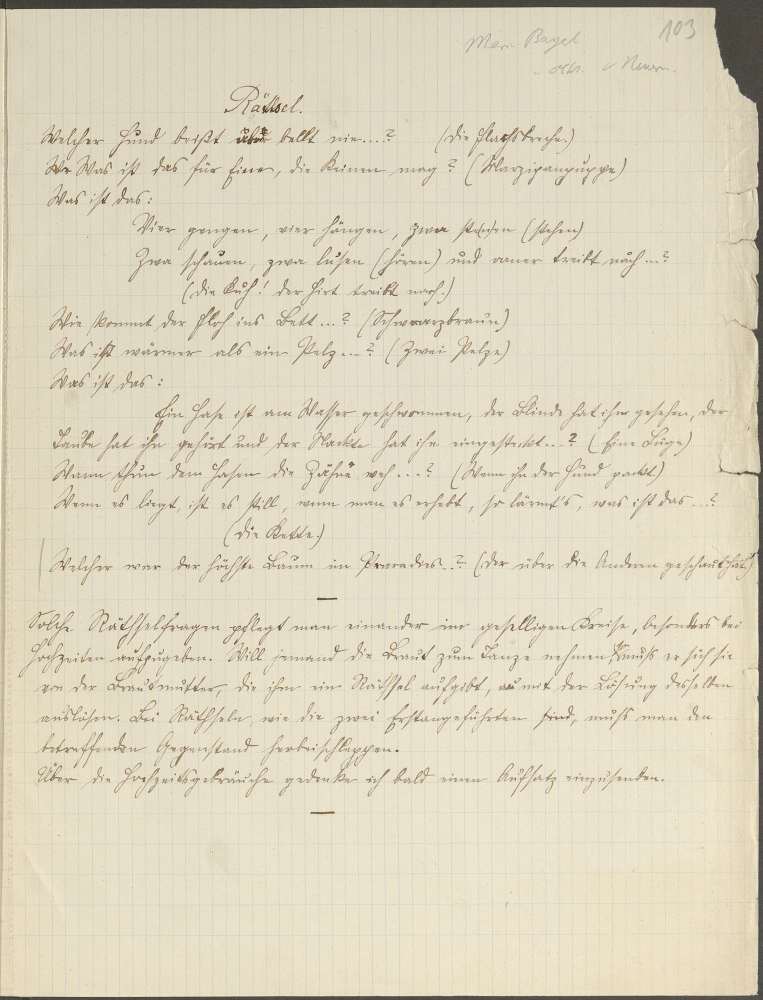 103
Räthsel.
Welcher Hund beißt aber bellt nie...? (Die Flachsbreche.)
We Was ist das für Eine, die Keinen mag? (Marzipanpuppe)
Was ist das:
Vier gengen, vier hängen, zwa stechen (stehen)
Zwa schauen, zwa lusen (hören) und aaner treibt nach...?
(Die Kuh! der Hirt treibt nach.)
Wie kommt der Floh ins Bett...? (Schwarzbraun)
Was ist wärmer als ein Pelz...? (Zwei Pelze)
Was ist das:
Ein Hase ist am Wasser geschwommen, der Blinde hat ihn gesehen, der
Taube hat ihn gehört und der Nackte hat ihn eingesteckt...? (Eine Lüge)
Wann thun dem Hasen die Zähne weh...? (Wenn ihn der Hund packt)
Wenn es liegt, ist es still, wenn man es erhebt, so lärmt's, was ist das...?
(Die Kette.)
Welcher war der höchste Baum im Paradies..? (Der über die Anderen geschaut hat)
Solche Räthselfragen pflegt man einander im geselligen Kreise, besonders bei
Hochzeiten aufzugeben. Will jemand die Braut zum Tanze nehmen muß er sich sie
von der Brautmutter, die ihm ein Räthsel aufgibt, mit der Lösung desselben
auslösen. Bei Räthseln, wie die zwei Erstangeführten sind, muß man den
betreffenden Gegenstand herbeischleppen.
Über die Hochzeitsgebräuche gedenke ich bald einen Aufsatz einzusenden.